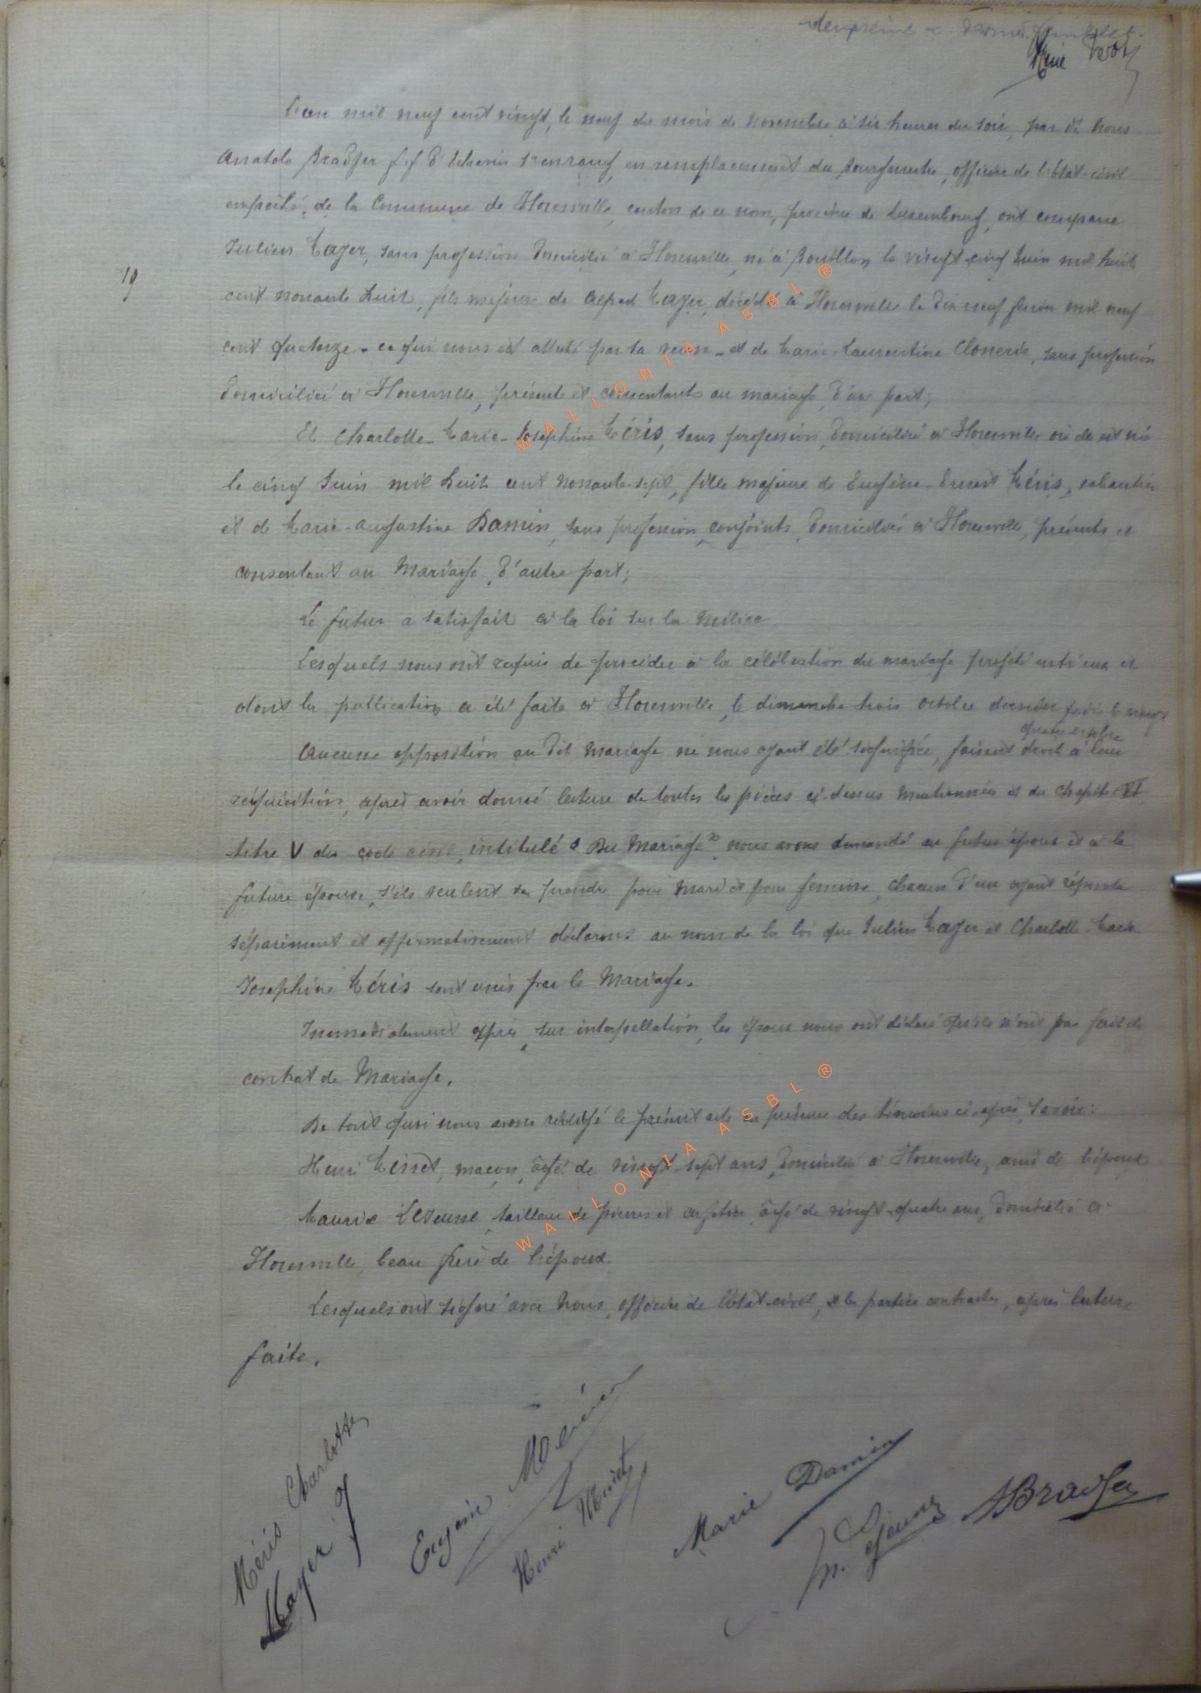 L'an mil neuf cent vingt, le neuf du mois de novembre à six heures du soir, par dt nous
Anatole Bradfer f.f d'échevin, en remplacement du bourgmestre, officier de l'état-civil
empêché, de la Commune de Florenville canton de ce nom, province de Luxembourg, ont comparu
Julien Mayer, sans profession domicilié à Florenville, né à Bouillon le vingt-cinq Juin mil huit
19
cent nonante huit, fils majeur de Alfred Mayer, décédé à Florenville le dix neuf mil neuf
cent quatorze - ce qui nous est attesté par sa veuve - et de Marie-Laurentine, sans profession
domiciliée à Florenville, présente et consentante au mariage, d'une part;
Et Charlotte-Marie-Josephine Méris, sans profession, domiciliée à Florenville où elle est née
le cinq Juin mil huit cent nonante-sept, fille majeure de Eugène-Ernest Méris, cabaretier
et de Marie-Augustine Damin, sans profession, conjoints, domiciliés à Florenville, présents et
consentant au Mariage, d'autre part;
Le futur a satisfait à la loi sur la milice
Lesquels nous ont requis de procéder à la célébration du mariage projeté entre eux et
dont la publication a été faite à Florenville, le dimanche trois octobre dernier
Aucune opposition au dit Mariage ne nous ayant été signifiée, faisant droit à leur
réquisition, après avoir donné lecture de toutes les pièces ci-dessus mentionnées et du chapitre VI
titre V du code civil, intitulé « Du Mariage », nous avons demandé au futur époux et à la
future épouse, s'ils veulent se prendre pour mari et pour femme, chacun d'eux ayant répondu
séparément et affirmativement déclarons au nom de la loi que Julien Mayer et Charlotte-Marie
Josephine Méris sont unis par le Mariage.
Immédiatement après, sur interpellation, les époux nous ont déclaré qu'ils n'ont pas fait de
contrat de Mariage.
De tout quoi nous avons rédigé le présent acte en présence des témoins ci-après, savoir:
Henri, maçon, âgé de vingt-sept ans, domicilié à Florenville, ami de l'époux
Maurice Lejeune, tailleur de pierres, âgé de vingt-quatre ans, domicilié à
Florenville, beau frère de l'époux.
Lesquels ont signé avec Nous, officier de l'état-civil, & les parties contractantes, après lecture
faite.
Méris Charlotte
Mayer J
Eugène Méris
Henri
Marie Damin
M. Lejeune
ABradfer
WALLONIA ASBL ®
WALLONIA ASBL ®